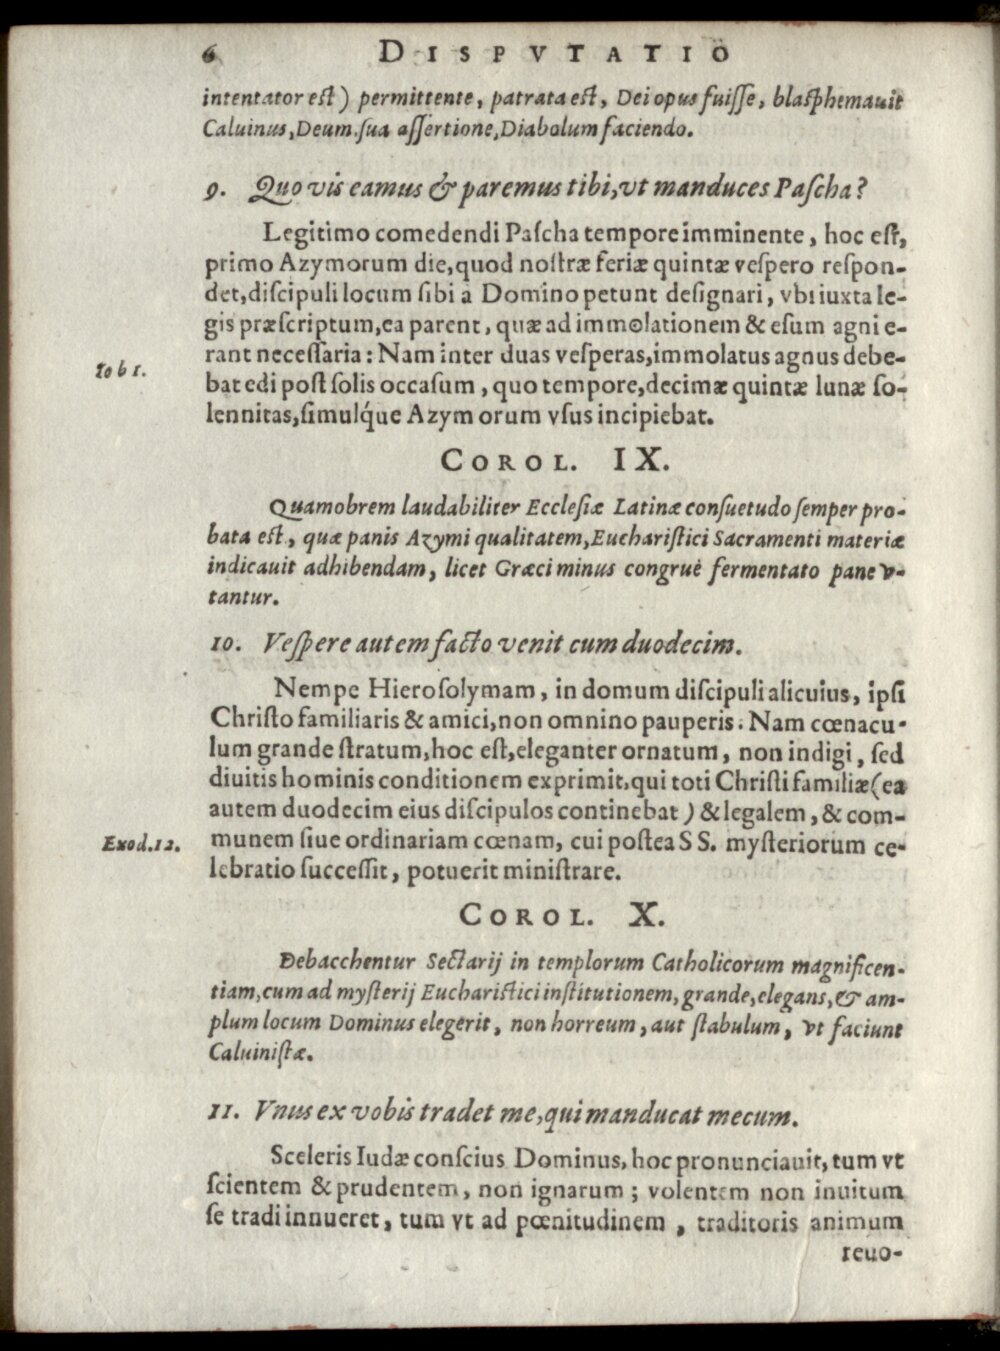 6 DISPVTATIO
intentator est) permittente, patrata est, Dei opus fuiſſe, blaſphemauit
Caluinus, Deum ſua aſſertione, Diabolum faciendo.
9. Quo vis eamus & paremus tibi, vt manduces Paſcha?
Legitimo comedendi Paſcha tempore imminente, hoc eſt,
primo Azymorum die, quod noſtræ feriæ quintæ veſpero reſpon-
det, diſcipuli locum ſibi à Domino petunt deſignari, vbi iuxta le-
gis præſcriptum, ea parent, quæ ad immolationem & eſum agni e-
rant neceſſaria: Nam inter duas veſperas, immolatus agnus debe-
Iob 1.
bat edi poſt ſolis occaſum, quo tempore, decimæ quintæ lunæ ſo-
lennitas, ſimulq́ue Azymorum vſus incipiebat.
COROL. IX.
Quamobrem laudabiliter Eccleſiæ Latinæ conſuetudo ſemper pro-
bata eſt, quæ panis Azymi qualitatem, Euchariſtici Sacramenti materiæ
indicauit adhibendam, licet Græci minus congruè fermentato pane v-
tantur.
10. Veſpere autem facto venit cum duodecim.
Nempe Hieroſolymam, in domum diſcipuli alicuius, ipſi
Chriſto familiaris & amici, non omnino pauperis. Nam cœnacu-
lum grande ſtratum, hoc eſt, eleganter ornatum, non indigi, ſed
diuitis hominis conditionem exprimit, qui toti Chriſti familiæ (ea
autem duodecim eius diſcipulos continebat) & legalem, & com-
Exod. 12.
munem ſiue ordinariam cœnam, cui poſtea SS. myſteriorum ce-
lebratio ſucceſſit, potuerit miniſtrare.
COROL. X.
Debacchentur Sectarij in templorum Catholicorum magnificen-
tiam, cum ad myſterij Euchariſtici inſtitutionem, grande, elegans, & am-
plum locum Dominus elegerit, non horreum, aut ſtabulum, vt faciunt
Caluiniſtæ.
11. Vnus ex vobis tradet me, qui manducat mecum.
Sceleris Iudæ conſcius Dominus, hoc pronunciauit, tum vt
ſcientem & prudentem, non ignarum; volentem non inuitum
ſe tradi innueret, tum vt ad pœnitudinem, traditoris animum
reuo-